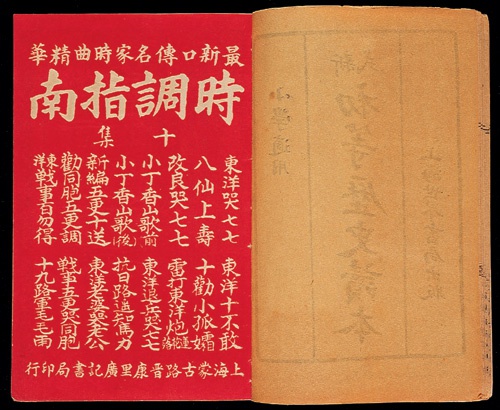 最新口傳名家時曲精華
時調指南
十集
東洋哭七七
八仙上壽
改良哭七七
小丁香山歌(前)
小丁香山歌(後)
新編五更十送
勸同胞五更調
東洋戰事百勿得
東洋十不敢
十勸小孤孀
雷打東洋炮蓮花落
東洋退兵哭七七
抗日路遥知馬力
東洋老婆哭老公
戰事五更哭同胞
十九路軍毛毛雨
上海蒙古路晉康里廣記書局印行
小學適用
初等歷史讀本